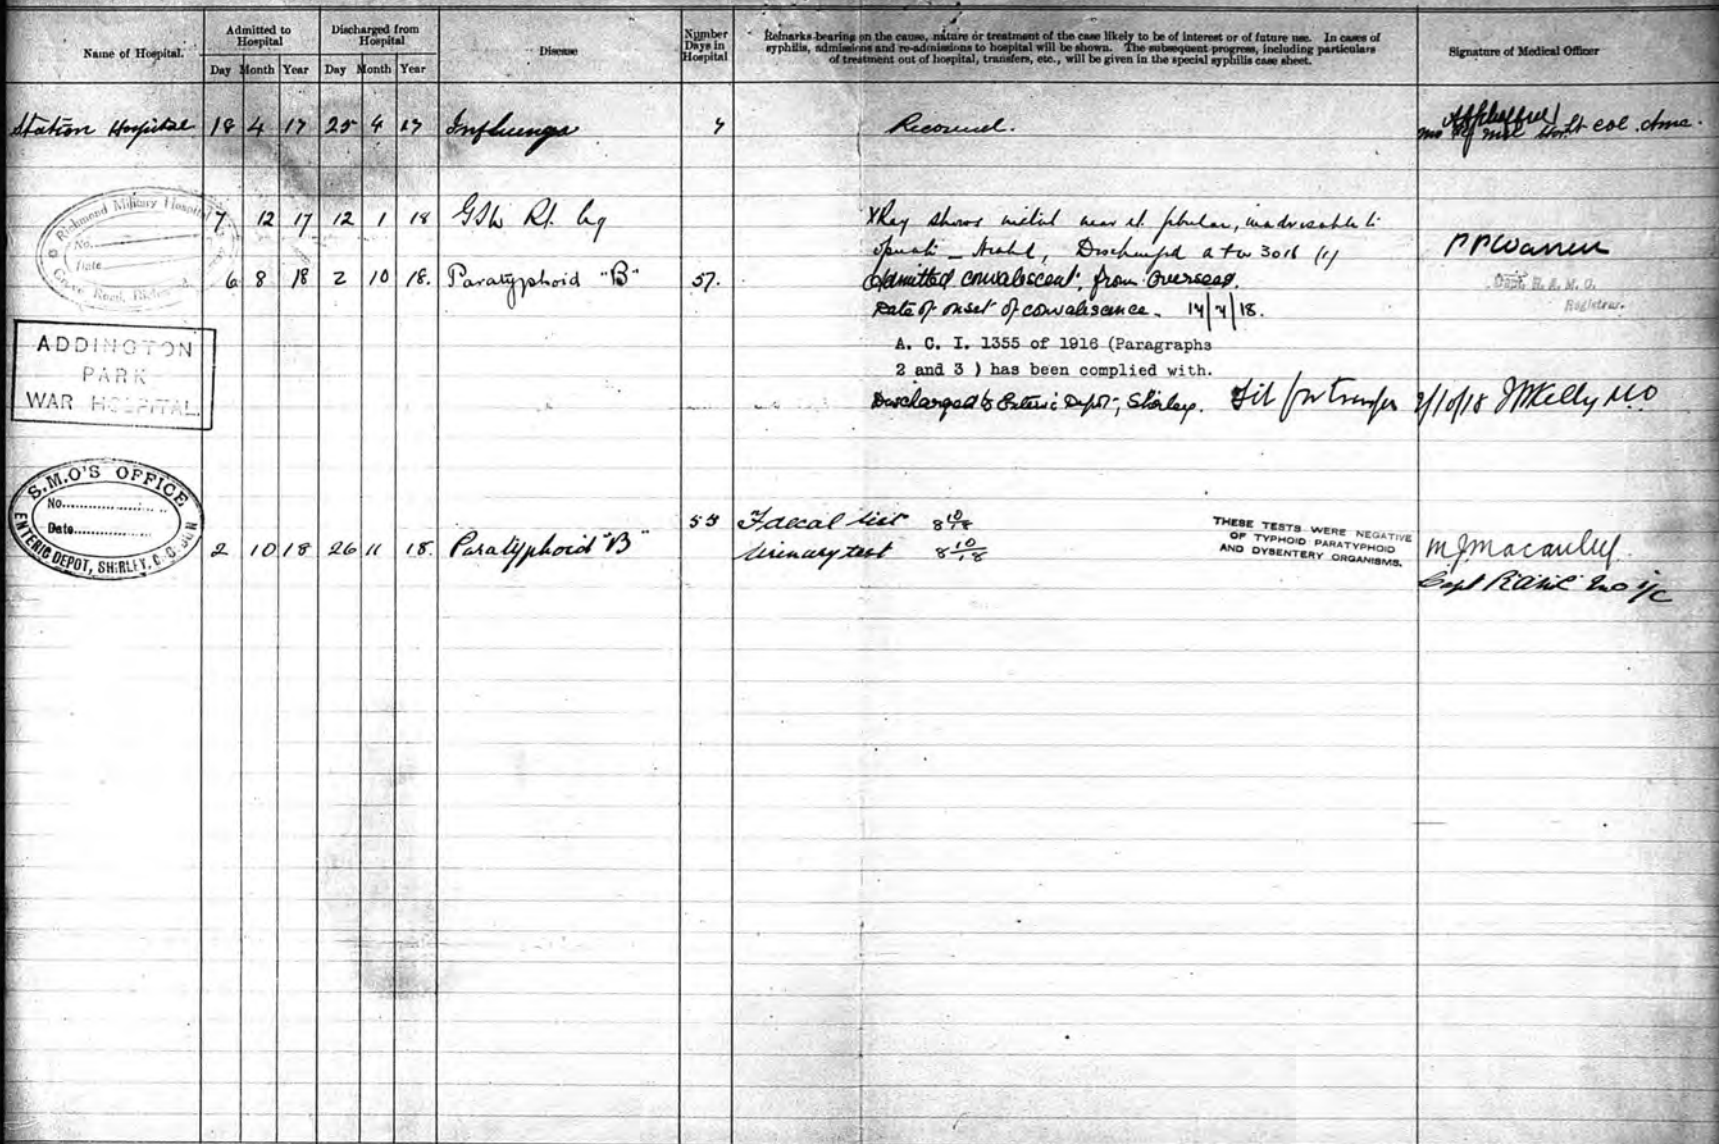 Name of Hospital.
Admitted to Hospital
Discharged from Hospital
Disease
Number Days in Hospital
Remarks bearing on the cause, nature or treatment of the case likely to be of interest or of future use. In cases of
syphilis, admissions and re-admissions to hospital will be shown. The subsequent progress, including particulars
of treatment out of hospital, transfers, etc., will be given in the special syphilis case sheet.
Signature of Medical Officer
Day Month Year Day Month Year
Station Hospital 18 4 17 25 4 17 Influenza 7 Recovered.
Lt col. amc.
Richmond Military Hospital
No.
Date
Grove Road, Richmond
7 12 17 12 1 18 GSW Rt. leg XRay shows metal near rt. fibula, inadvisable to
operate _ Healed, Discharged
PPWarren
Capt. R.A.M.C.
Registrar.
6 8 18 2 10 18. Paratyphoid "B" 57. Admitted convalescent, from Overseas.
Date of onset of convalescence. 14/7/18.
ADDINGTON
PARK
WAR HOSPITAL.
A. C. I. 1355 of 1916 (Paragraphs
2 and 3 ) has been complied with.
Discharged to Enteric Depot, Shirley. Fit for transfer 2/10/18 JMKelly MO
S.M.O'S OFFICE
No.
Date
ENTERIC DEPOT, SHIRLEY,
55 Faecal test 8 10/18
2 10 18 26 11 18. Paratyphoid "B" Urinary test 8 10/18
THESE TESTS WERE NEGATIVE
OF TYPHOID PARATYPHOID
AND DYSENTERY ORGANISMS.
M J Macauley
Capt RAMC mo i/c